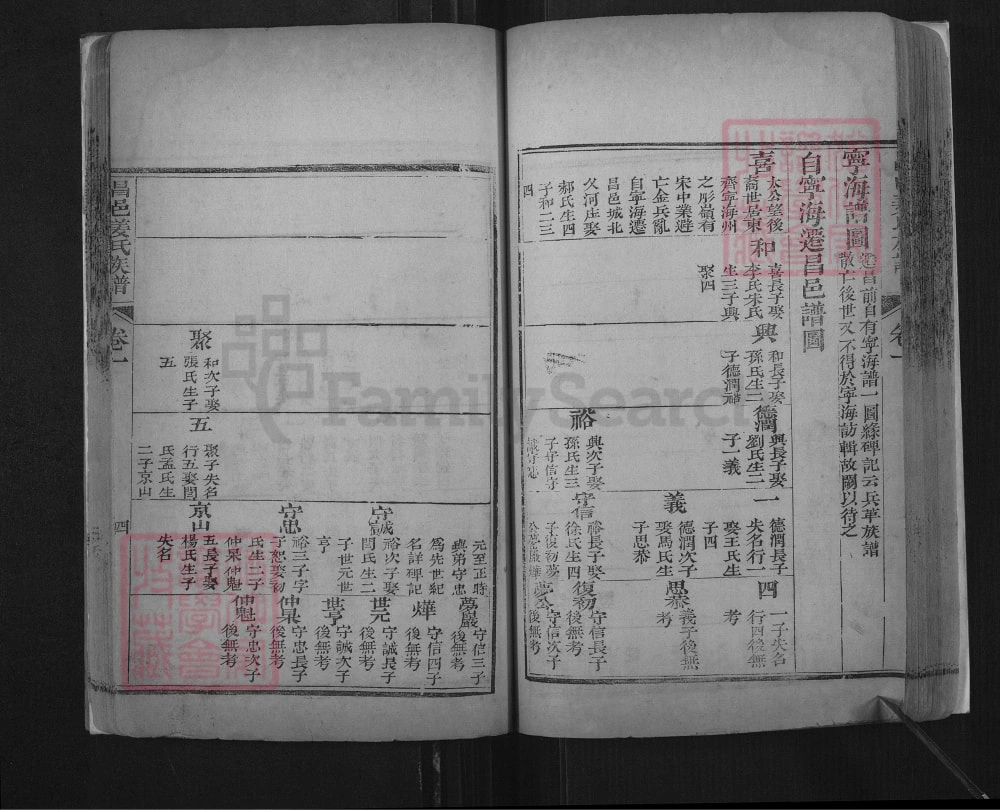 寧海譜圖
遷昌前自有寧海譜一圖緣碑記云兵革族譜
散亡後世又不得於寧海訪輯故闕以待之
自寧海遷昌邑譜圖
喜
太公望後
裔世居東
齊寧海州
之彤嶺有
宋中業避
亡金兵亂
自寧海遷
昌邑城北
夂河庄娶
郝氏生四
子和二三
四
和
喜長子娶
李氏宋氏
生三子興
聚四
興
和長子娶
孫氏生二
子德潤裕
德潤
興長子娶
劉氏生二
子一義
一
德潤長子
失名行一
娶王氏生
子四
四
一子失名
行四後無
考
義
德潤次子
娶馬氏生
子思恭
思恭
義子後無
考
裕
興次子娶
孫氏生三
子守信守
誠守忠
守信
裕長子娶
徐氏生四
子復初夢
復初
守信長子
後無考
守信次子
後無考
昌邑姜氏族譜
卷一
四
元至正時
與弟守忠
爲先世紀
名詳碑記
夢巖
守信三子
後無考
燁
守信四子
後無考
守誠
裕次子娶
閆氏生二
子世元世
亨
世元
守誠長子
後無考
世亨
守誠次子
後無考
守忠
裕三子字
子恕娶初
氏生二子
仲杲仲魁
仲杲
守忠長子
後無考
仲魁
守忠次子
後無考
聚
和次子娶
張氏生子
五
五
聚子失名
行五娶閆
氏孟氏生
二子京山
京山
五長子娶
楊氏生子
失名
FamilySearch